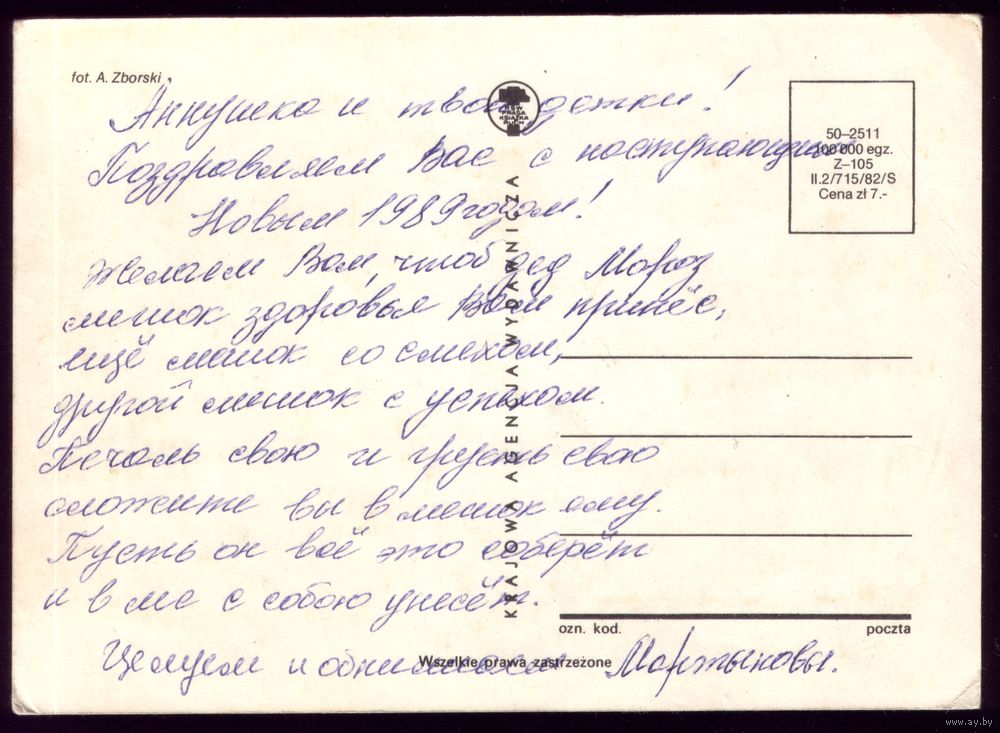 fot. A. Zborski
Аннушка и твои дочки!
Поздравляем Вас с наступающим
Новым 1989 годом!
Желаем Вам, чтоб дед Мороз
мешок здоровья Вам принёс,
ещё мешок со смехом,
другой мешок с успехом.
Печаль свою и грусть свою
сложите вы в мешок ему.
Пусть он всё это соберёт
и в лес с собою унесёт.
Целуем и обнимаем Мартыновы.
PRASA
KSIĄŻKA
RUCH
50–2511
100 000 egz.
Z–105
II.2/715/82/S
Cena zł 7.-
KRAJOWA AGENCJA WYDAWNICZA
ozn. kod. poczta
Wszelkie prawa zastrzeżone
www.ay.by